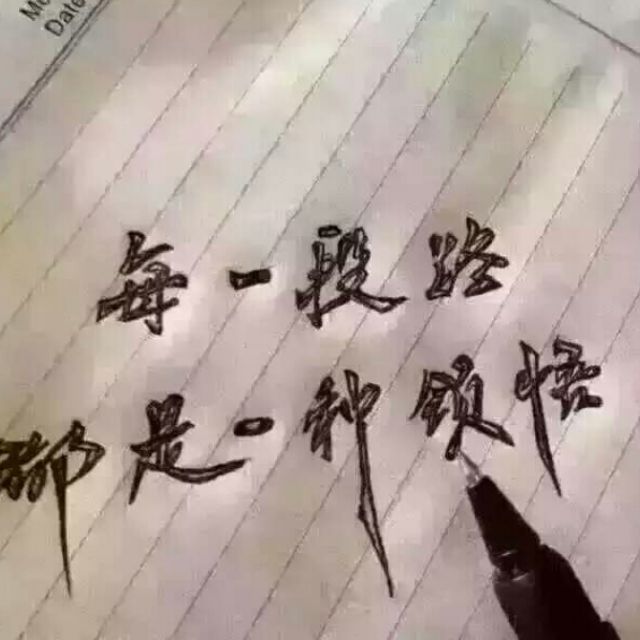 Mo
Date
每一段路
都是一种领悟